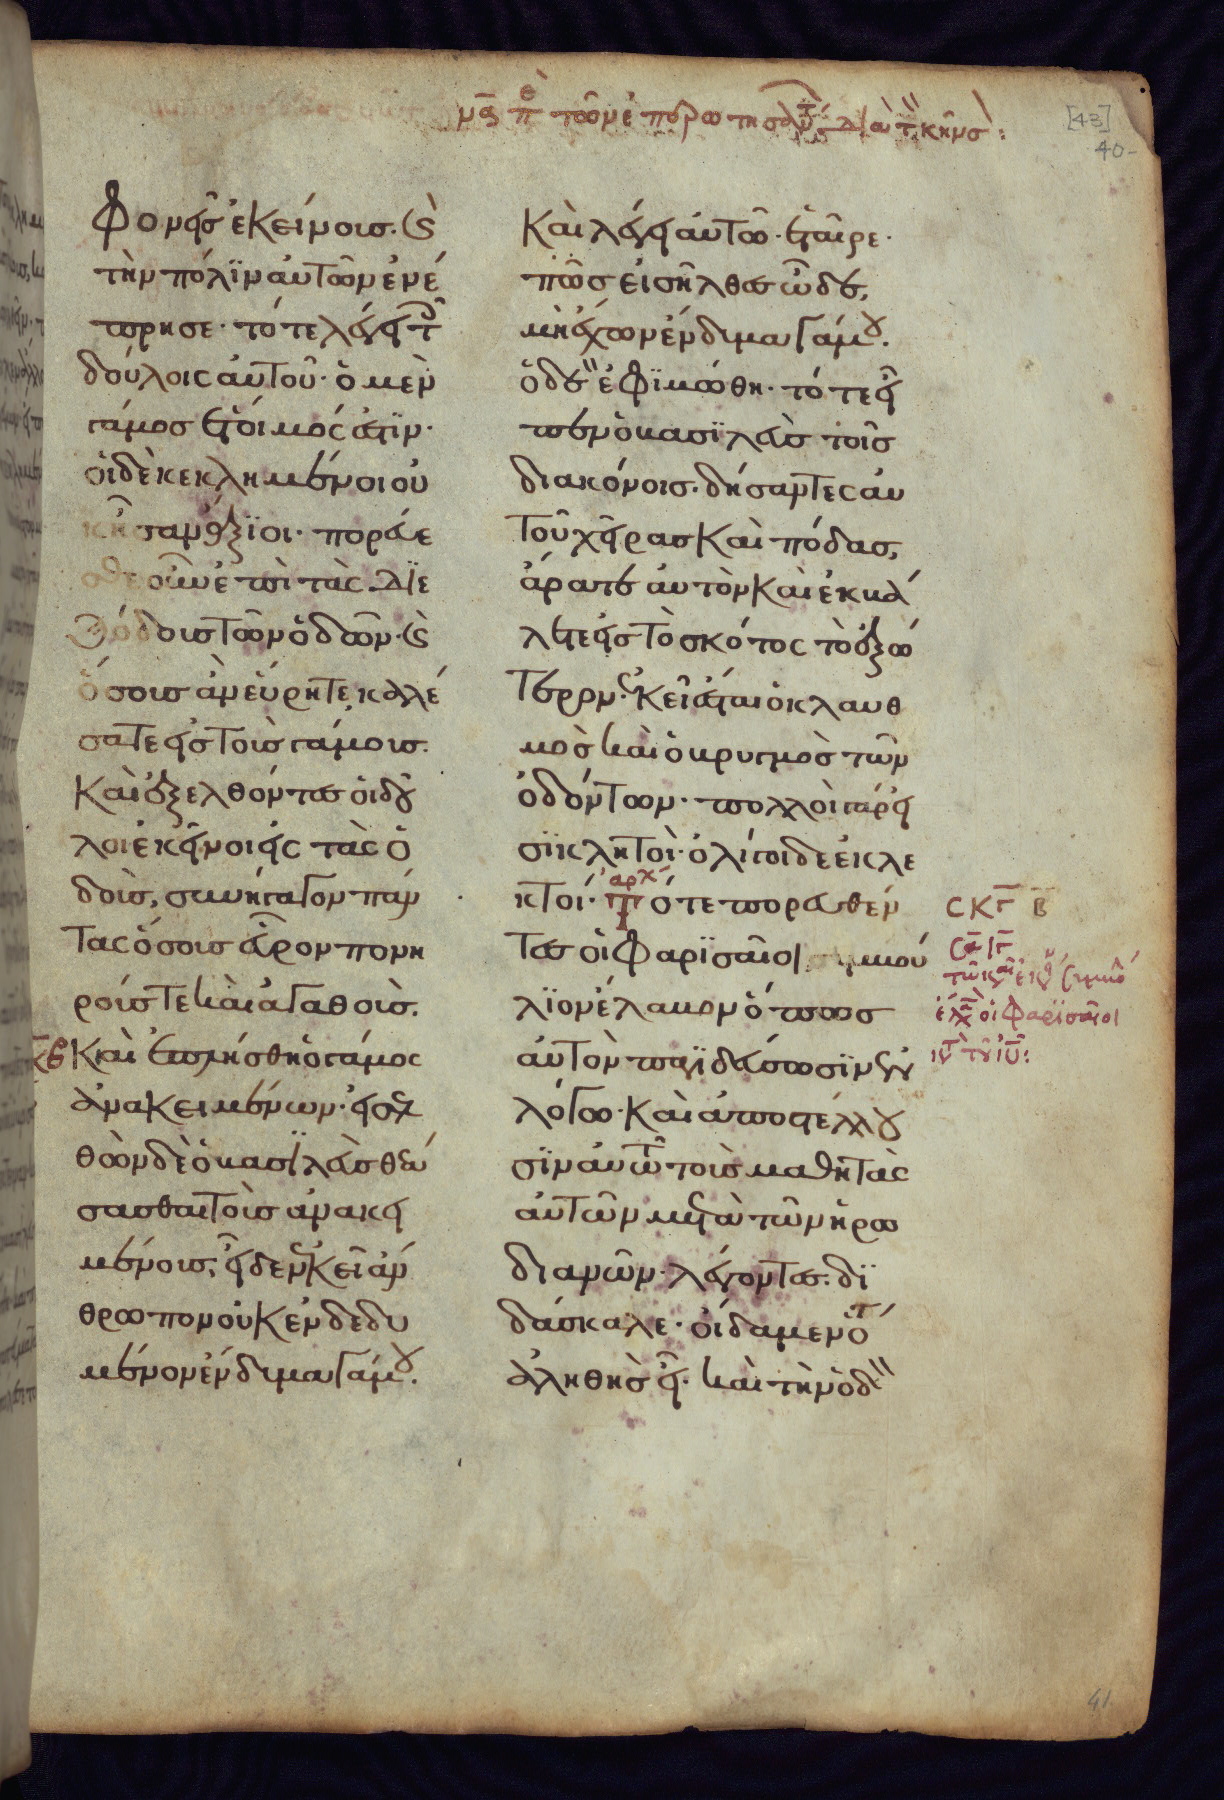 μς ͞π θ των ἐπερωτησάντων διὰ τὸν κῆνσον:
[43]
40-
φονεῖς ἐκείνοις. καὶ
τὴν πόλϊν αὐτῶν ἐνέ
πρησε· τότε λέγει τοῖς
δούλοις αὐτοῦ· ὁ μὲν
γάμος ἕτοιμός ἐστϊν·
οἱ δὲ κεκλημένοι οὐ
κ ἦσαν ἄξϊοι· πορεύε
σθε οὖν ἐπὶ τὰς διε
ξόδους τῶν ὁδῶν· καὶ
ὅσους ἂν εὕρητε, καλέ
σατε εἰς τοὺς γάμους.
Καὶ ἐξελθόντες οἱ δοῦ
λοι ἐκεῖνοι εἰς τὰς ὁ
δοὺς, συνήγαγον πάν
τας ὅσους εὗρον πονη
ρούς τε καὶ ἀγαθοὺς.
Καὶ ἐπλήσθη ὁ γάμος
ἀνακειμένων· εἰσελ
θὼν δὲ ὁ βασϊλεὺς θεά
σασθαι τοὺς ἀνακει
μένους, εἶδεν ἐκεῖ ἄν
θρωπον οὐκ ἐνδεδυ
μένον ἔνδυμα γάμου.
Καὶ λέγει αὐτῶ· ἑταῖρε·
πῶς εἰσῆλθες ὧδε,
μὴ ἔχων ἔνδυμα γάμου.
ὁ δὲ ἐφϊμώθη· τότε εἶ
πεν ὁ βασϊλεὺς τοῖς
διακόνοις· δήσαντες αὐ
τοῦ χεῖρας καὶ πόδας,
ἄρατε αὐτὸν καὶ ἐκβά
λετε εἰς τὸ σκότος τὸ ἐξώ
τερον· ἐκεῖ ἔσται ὁ κλαυθ
μὸς καὶ ὁ βρυγμὸς τῶν
ὀδόντων· πολλοὶ γάρ εἰ
σϊ κλητοὶ· ὀλίγοι δὲ ἐκλε
κτοί· ἀρχ τότε πορευθέν
τες οἱ φαρϊσαῖοι συμβού
λϊον ἔλαβον ὅπως
αὐτὸν παγϊδεύσωσϊν ἐν
λόγω· καὶ ἀποστέλλου
σϊν αὐτῶ τοὺς μαθητὰς
αὐτῶν μετὰ τῶν ἡρω
διανῶν· λέγοντες· δϊ
δάσκαλε· οἴδαμεν ὅτι
ἀληθὴς εἶ· καὶ τὴν ὁδὸν
ϹΚΓ Β
τῶ καιρῶ ἐκείνω συμβού
ἔλαβον οἱ φαρϊσαῖοι
41